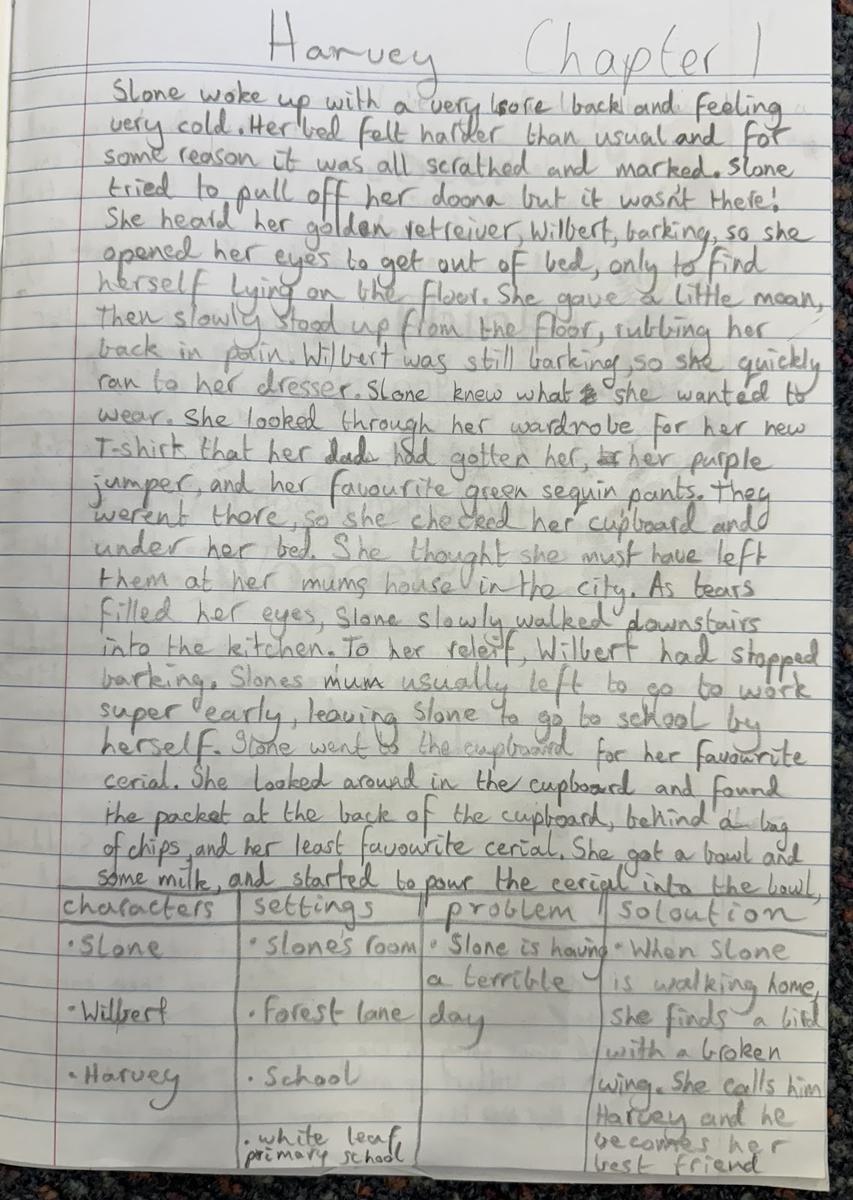 Harvey Chapter 1
Slone woke up with a very sore back and feeling
very cold. Her bed felt harder than usual and for
some reason it was all scrathed and marked. Slone
tried to pull off her doona but it wasn't there!
She heard her golden retreiver, Wilbert, barking, so she
opened her eyes to get out of bed, only to find
herself lying on the floor. She gave a little moan,
then slowly stood up from the floor, rubbing her
back in pain. Wilbert was still barking, so she quickly
ran to her dresser. Slone knew what she wanted to
wear. She looked through her wardrobe for her new
T-shirt that her dad had gotten her, her purple
jumper, and her favourite green sequin pants. They
werent there, so she checked her cupboard and
under her bed. She thought she must have left
them at her mums house in the city. As tears
filled her eyes, Slone slowly walked downstairs
into the kitchen. To her releif, Wilbert had stopped
barking. Slones mum usually left to go to work
super early, leaving Slone to go to school by
herself. Slone went to the cupboard for her favourite
cerial. She looked around in the cupboard and found
the packet at the back of the cupboard, behind a bag
of chips, and her least favourite cerial. She got a bowl and
some milk, and started to pour the cerial into the bowl,
characters
• Slone
• Wilbert
• Harvey
settings
• Slone's room
• Forest lane
• School
• white leaf
primary school
problem
• Slone is having
a terrible
day
soloution
• When Slone
is walking home,
she finds a bird
with a broken
wing. She calls him
Harvey and he
becomes her
best friend